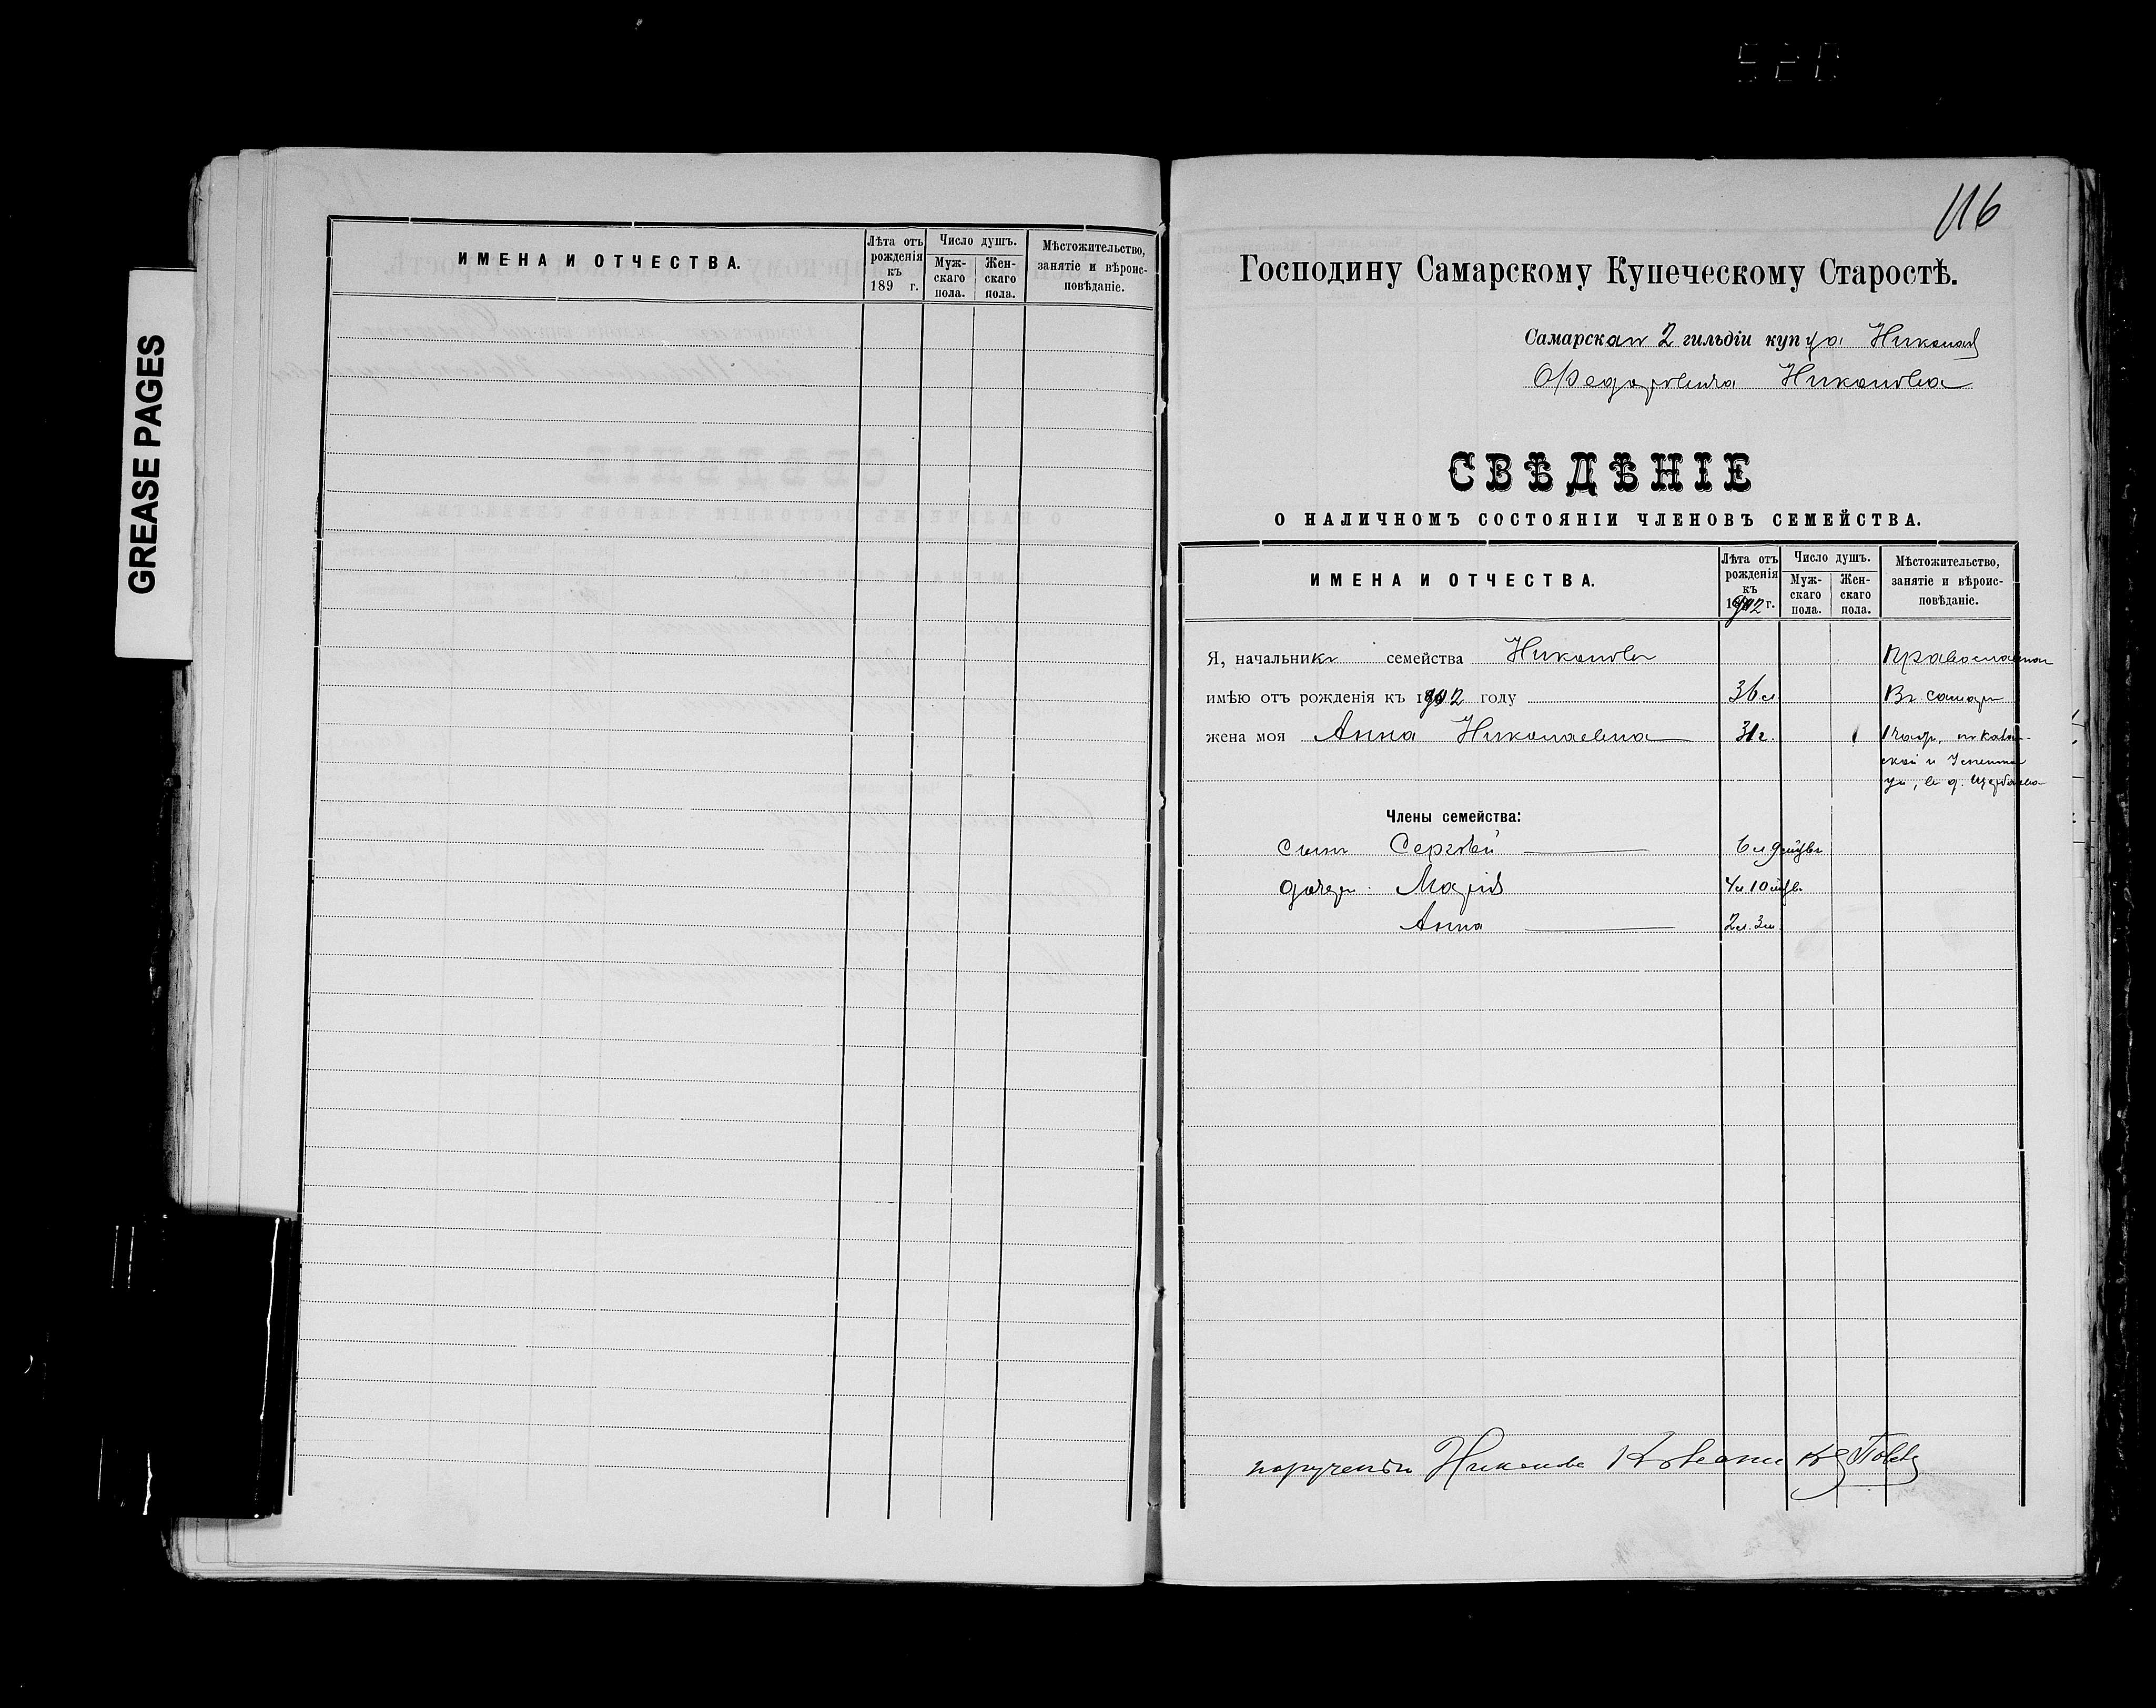 520
GREASE PAGES
ИМЕНА И ОТЧЕСТВА.
Лѣта отъ рожденія къ 189 г.
Число душъ.
Мужскаго пола.
Женскаго пола.
Мѣстожительство, занятіе и вѣроисповѣданіе.
116
Господину Самарскому Купеческому Старостѣ.
Самарскаго 2 гильдіи купца Николая
Федоровича Никонова
СВѢДѢНІЕ
О НАЛИЧНОМЪ СОСТОЯНІИ ЧЛЕНОВЪ СЕМЕЙСТВА.
ИМЕНА И ОТЧЕСТВА.
Лѣта отъ рожденія къ 1902 г.
Число душъ.
Мужскаго пола.
Женскаго пола.
Мѣстожительство, занятіе и вѣроисповѣданіе.
Я, начальникъ семейства Никоновъ Православнаго
имѣю отъ рожденія къ 1902 году 36 л Въ Самарѣ
жена моя Анна Николаевна 31 г. 1 1 части,
ул, въ д. Щербакова
Члены семейства:
сынъ Сергѣй 6 л 9 мѣсяцевъ
дочери Марія 4 л 10 мѣсяцев.
Анна 2 л. 3 м.
Никонова